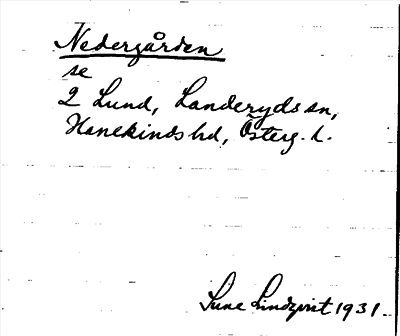 Nedergården
se
2 Lund, Landeryds sn,
Hanekinds hd, Österg. l.
Sune Lindqvist 1931.